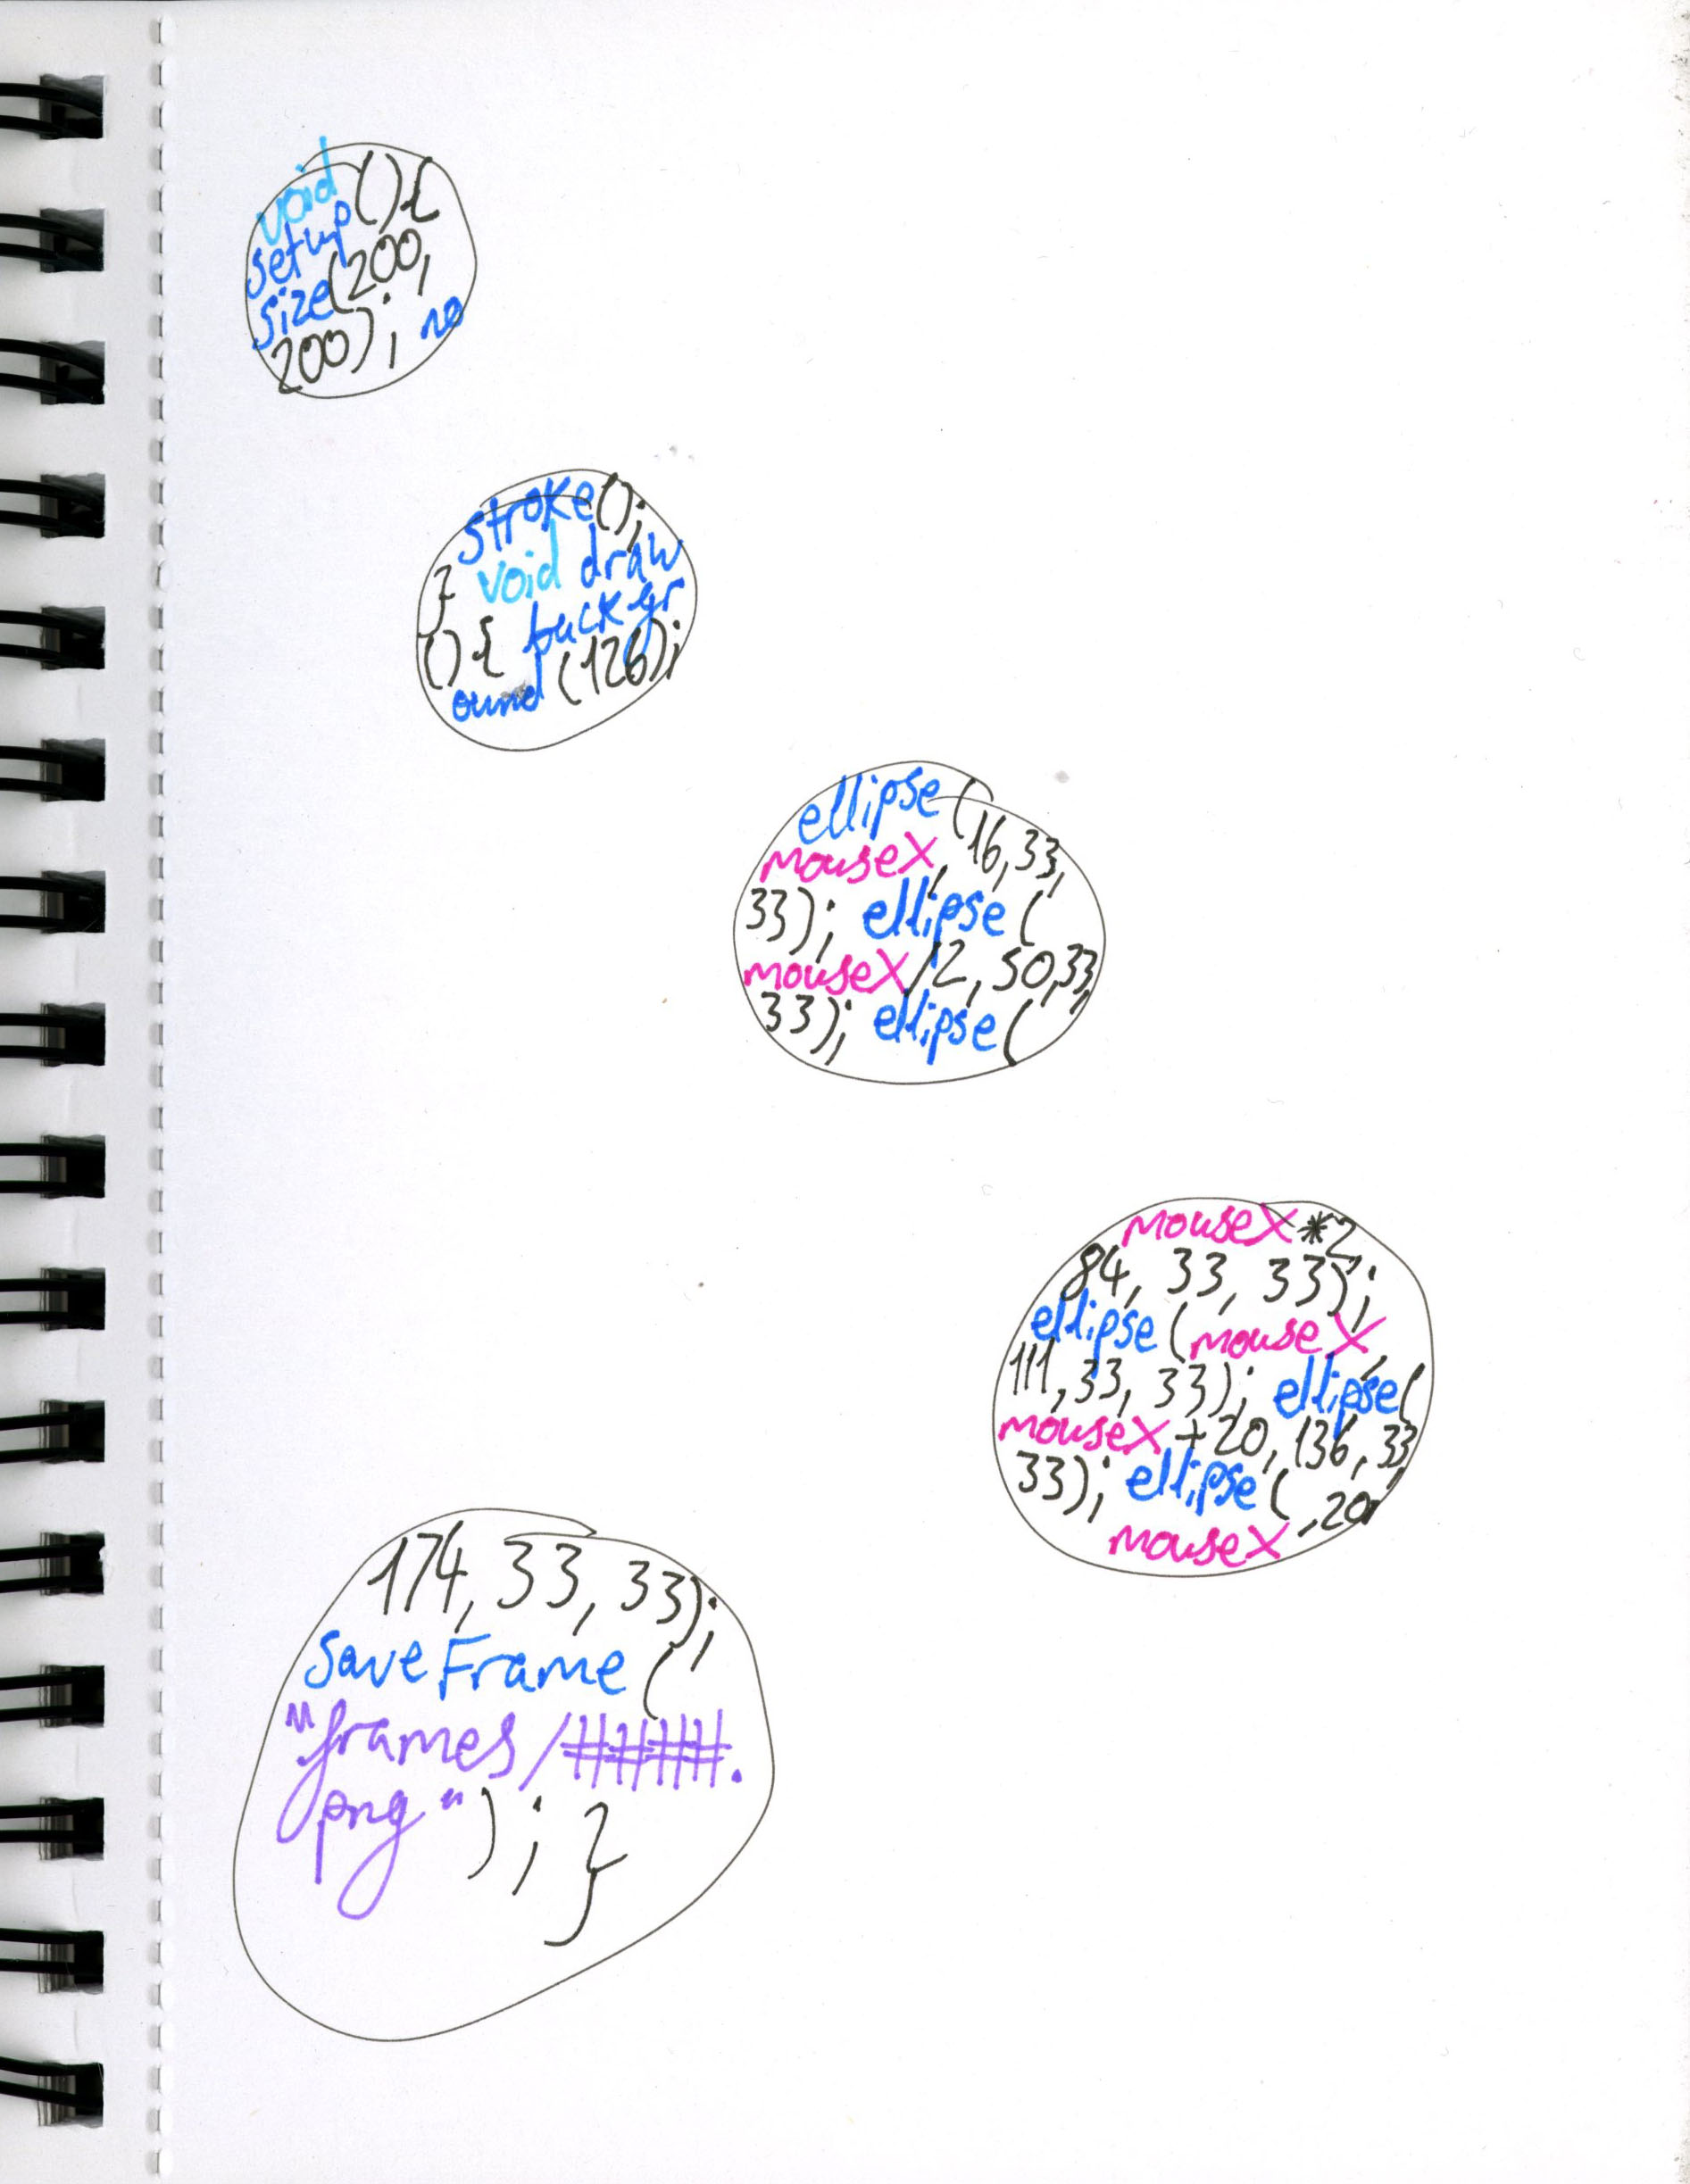 void (){
setup
size(200,
200); no
stroke();
} void draw
(){ backgr
ound (126);
ellipse (
mouseX, 16,33,
33); ellipse (
mouseX/2, 50,33,
33); ellipse (
mouseX*2,
84, 33, 33);
ellipse (mouseX,
111, 33, 33); ellipse(
mouseX +20, 136, 33,
33); ellipse (
mouseX ,20,
174, 33, 33);
saveFrame (
"frames/####.
png"); }